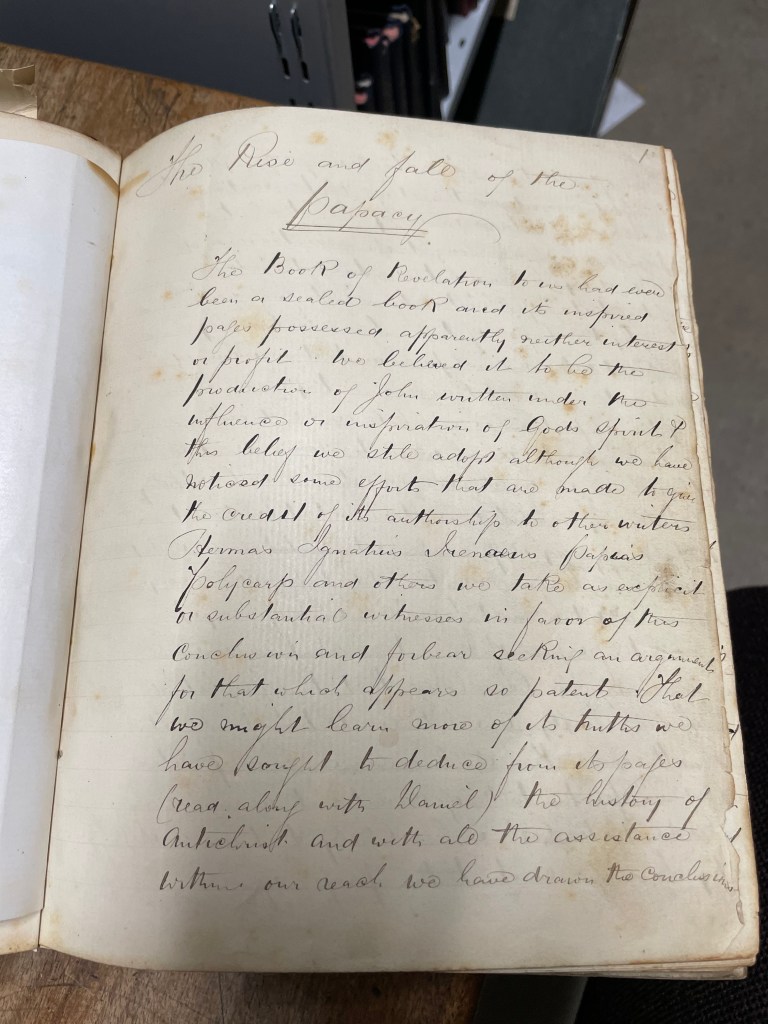 The Rise and fall of the
1
Papacy
The Book of Revelation to us had ever
been a sealed book and its inspired
pages possessed apparently neither interest
or profit. We believed it to be the
production of John written under the
influence or inspiration of Gods spirit &
this belief we still adopt although we have
noticed some efforts that are made to give
the credit of its authorship to other writers
Hermas Ignatius Irenaeus Papias
Polycarp and others we take as explicit
or substantial witnesses in favor of this
conclusion and forbear seeking an argument
for that which appears so patent. That
we might learn more of its truths we
have sought to deduce from its pages
(read along with Daniel) the history of
Antichrist and with all the assistance
within our reach we have drawn the conclusions